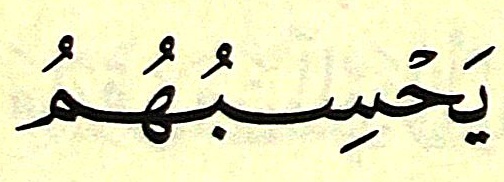 يَحْسِبُهُمُ